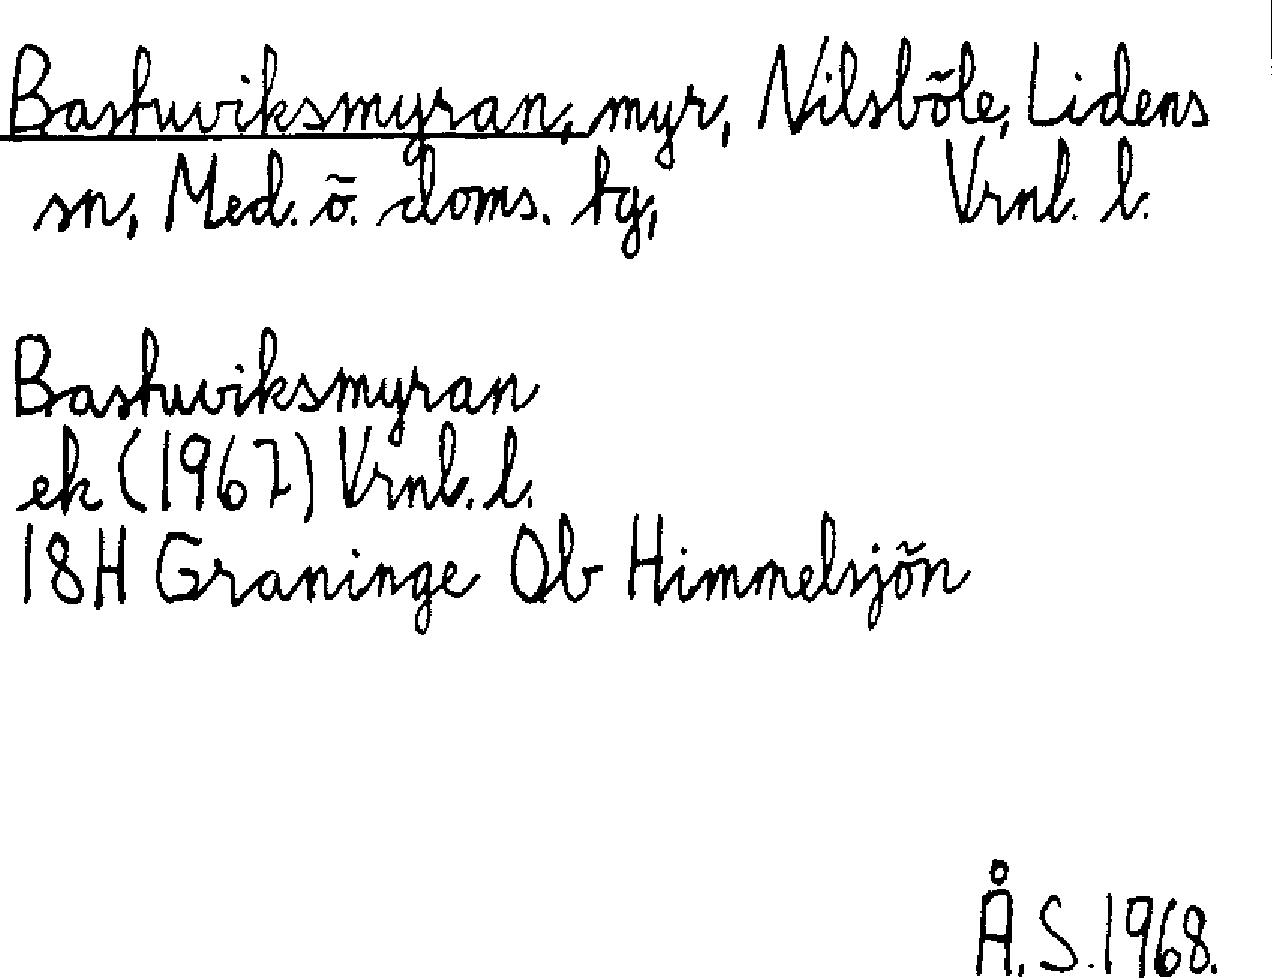 Bastuviksmyran, myr, Nilsböle, Lidens
sn, Med. ö. doms. tg, Vrnl. l.
Bastuviksmyran
ek (1967) Vrnl. l.
18H Graninge Ob Himmelsjön
Å. S. 1968.